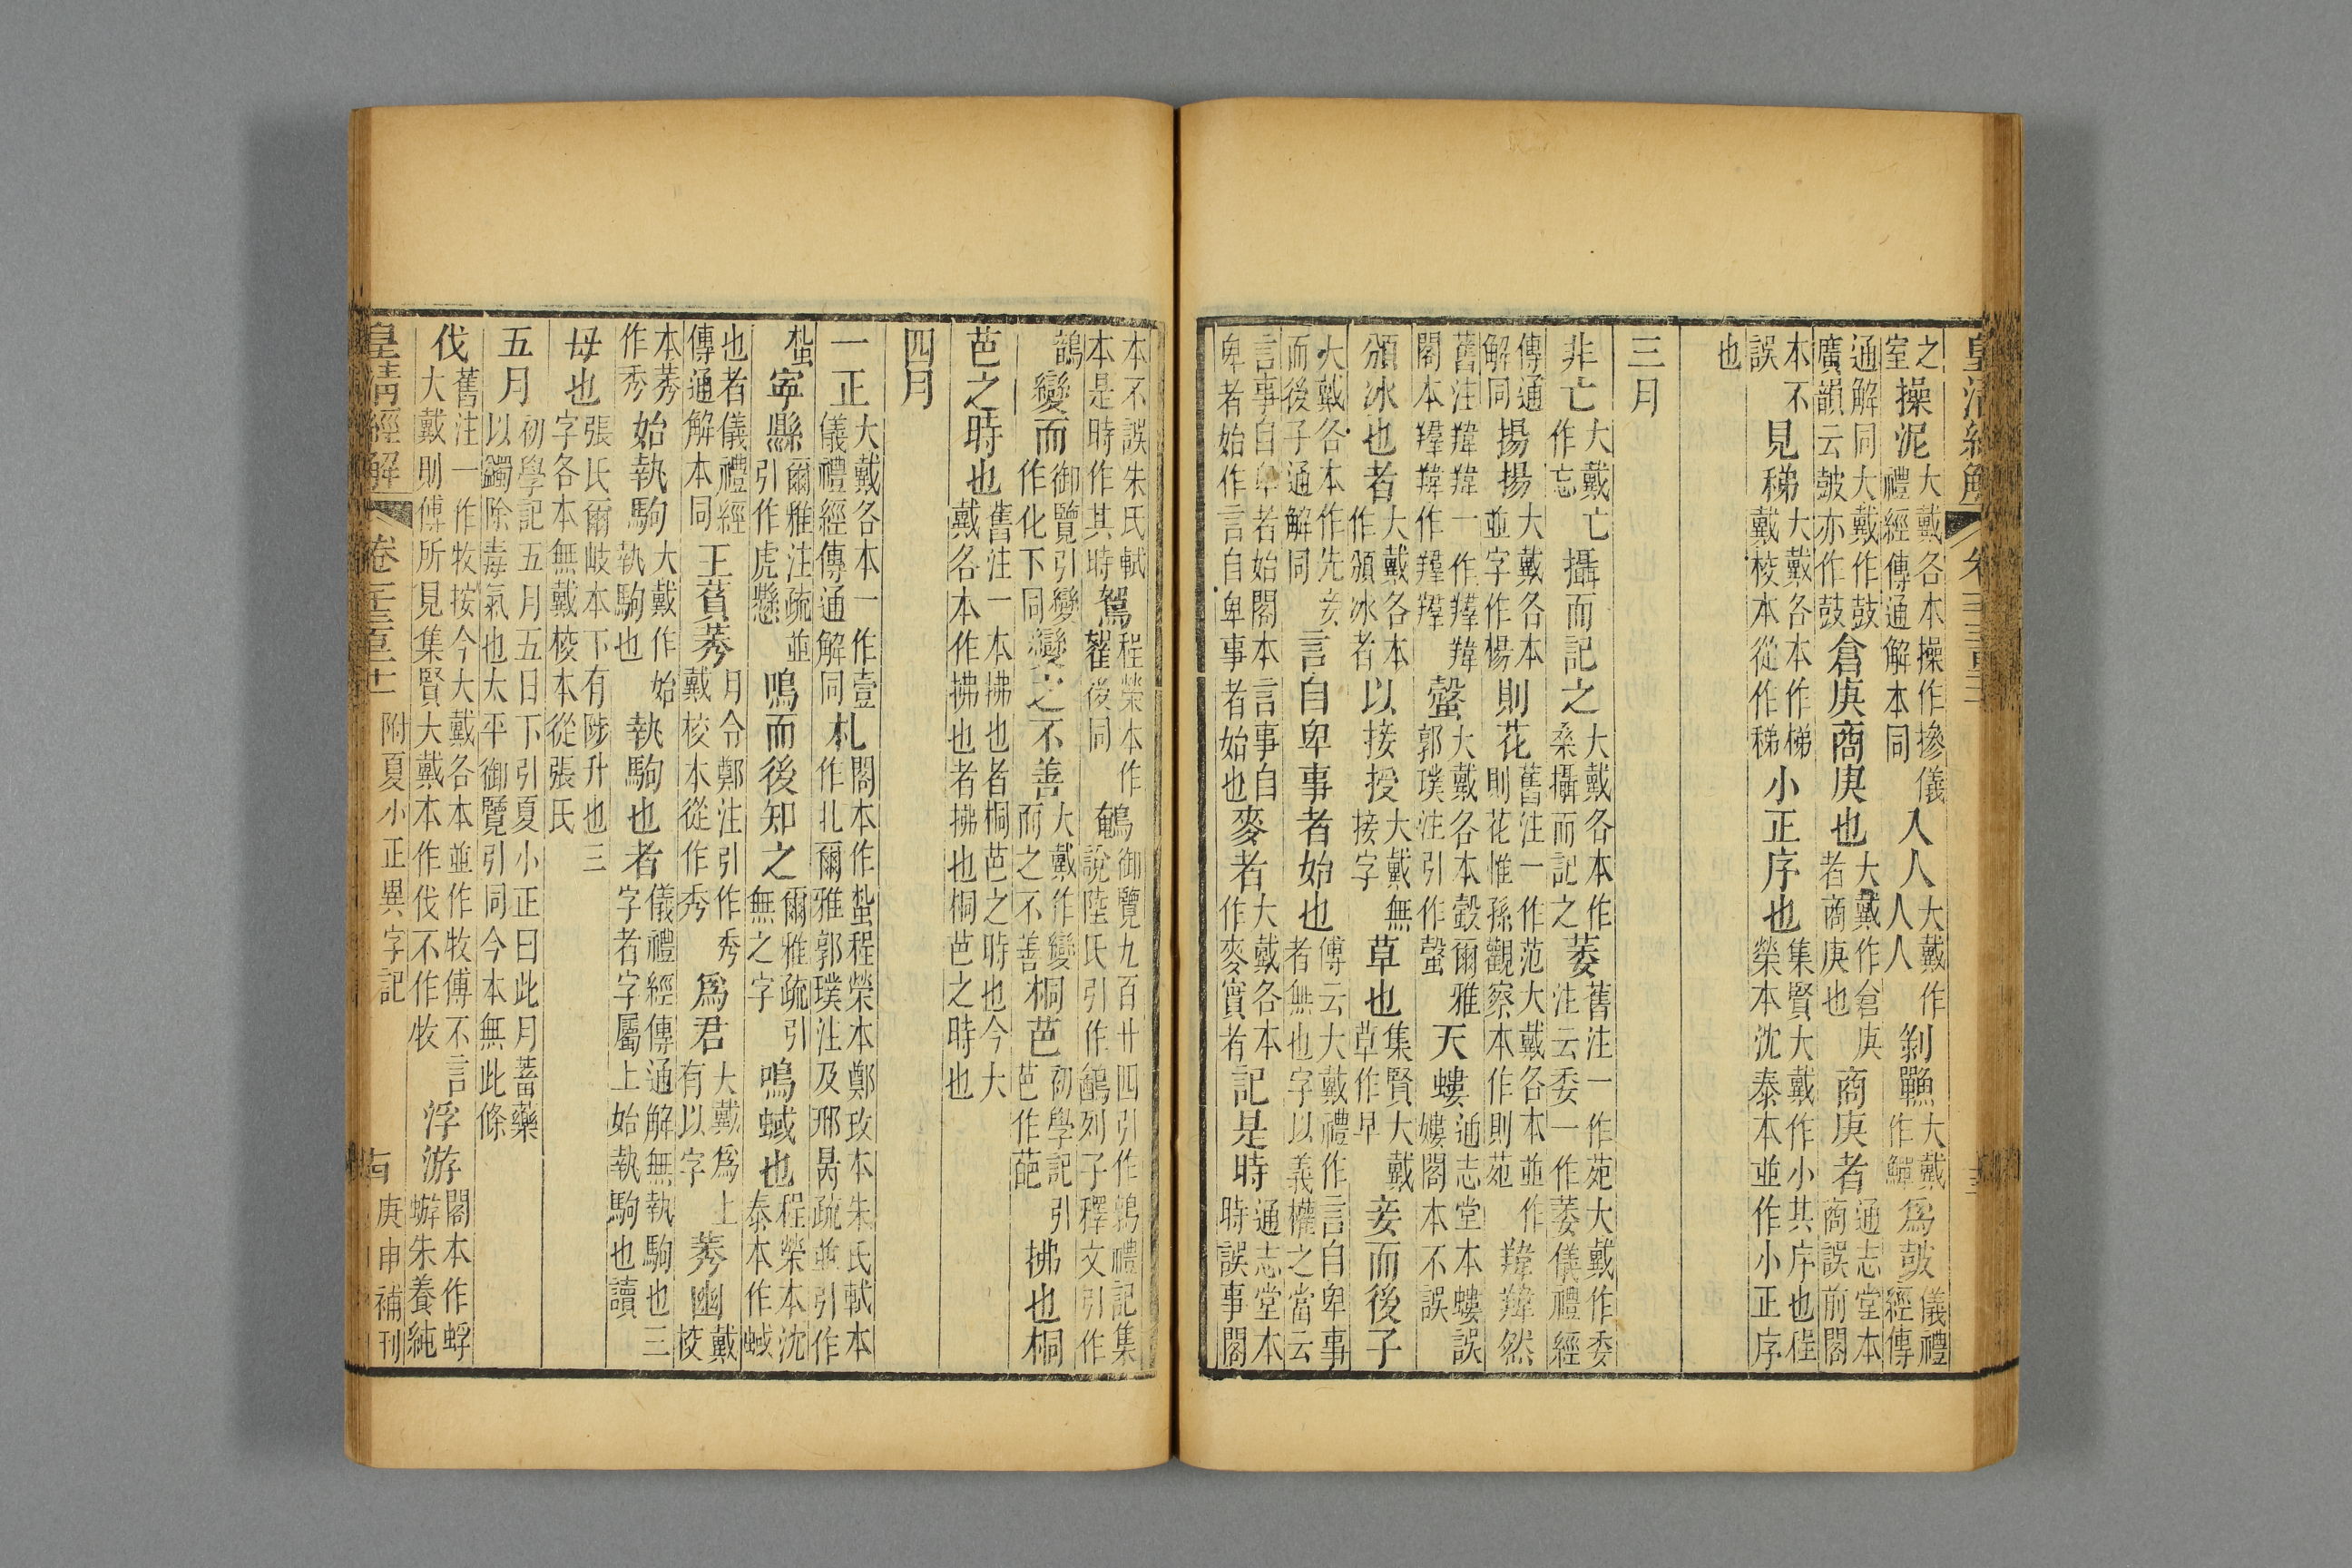 皇清經解
之室操泥大戴各本操作摻儀禮經傳通解本同入人大戴作人人剝鱓大戴作鱓爲鼓儀禮經傳
通解同大戴作鼓廣韻云皷亦作鼓倉庚商庚也大戴作倉庚者商庚也商庚者通志堂本商誤前閣
本不誤見稊大戴各本作梯戴校本從作稊小正序也集賢大戴作小其序也程榮本沈泰本並作小正序
也
三月
非亡大戴亡作忘攝而記之大戴各本作桑攝而記之萎舊注一作苑大戴作委注云委一作萎儀禮經
傳通解同揚揚大戴各本並字作楊則花舊注一作范大戴各本並作則花惟孫觀察本作則苑䍧䍧然
舊注䍧䍧一作䍧䍧閣本䍧䍧作䍧䍧螜大戴各本作瞉爾雅郭璞注引作螜天螻通志堂本螻誤㜢閣本不誤
頒冰也者大戴各本作頒冰者以接授大戴無接字草也集賢大戴草作早妾而後子
大戴各本作先妾而後子通解同言自卑事者始也傳云大戴禮作言自卑事者無也字以義權之當云
言事自卑者始閣本言事自卑者始作言自卑事者始也麥者大戴各本作麥實者記是時通志堂本時誤事閣
本不誤朱氏軾本是時作其時鴽程榮本作鴽後同鵪御覽九百卄四引作鶉禮記集說陸氏引作鷂列子釋文引作
鶕變而御覽引變作化下同變而之不善大戴作變而之不善桐芭初學記引芭作葩拂也桐
芭之時也舊注一本拂也者桐芭之時也今大戴各本作拂也者拂也桐芭之時也
四月
一正大戴各本一作壹儀禮經傳通解同札閣本作蚻程榮本鄭玫本朱氏軾本作北爾雅郭璞注及邢昺疏並引作
蚻寧縣爾雅注疏並引作虎懸鳴而後知之爾雅疏引無之字鳴蜮也程榮本沈泰本作蜮
也者儀禮經傳通解本同王萯莠月令鄭注引作秀戴校本從作秀爲君大戴爲上有以字莠幽戴校
本莠作秀始執駒大戴作始執駒也執駒也者儀禮經傳通解無執駒也三字者字屬上始執駒也讀
母也張氏爾岐本下有陟升也三字各本無戴校本從張氏
五月初學記五月五日下引夏小正曰此月蓄藥以蠲除毒氣也太平御覽引同今本無此條
伐舊注一作牧按今大戴各本並作牧傅不言大戴則傅所見集賢大戴本作伐不作牧浮游閣本作蜉蝣朱養純
皇清經解 卷 附夏小正異字記 庚申補刊